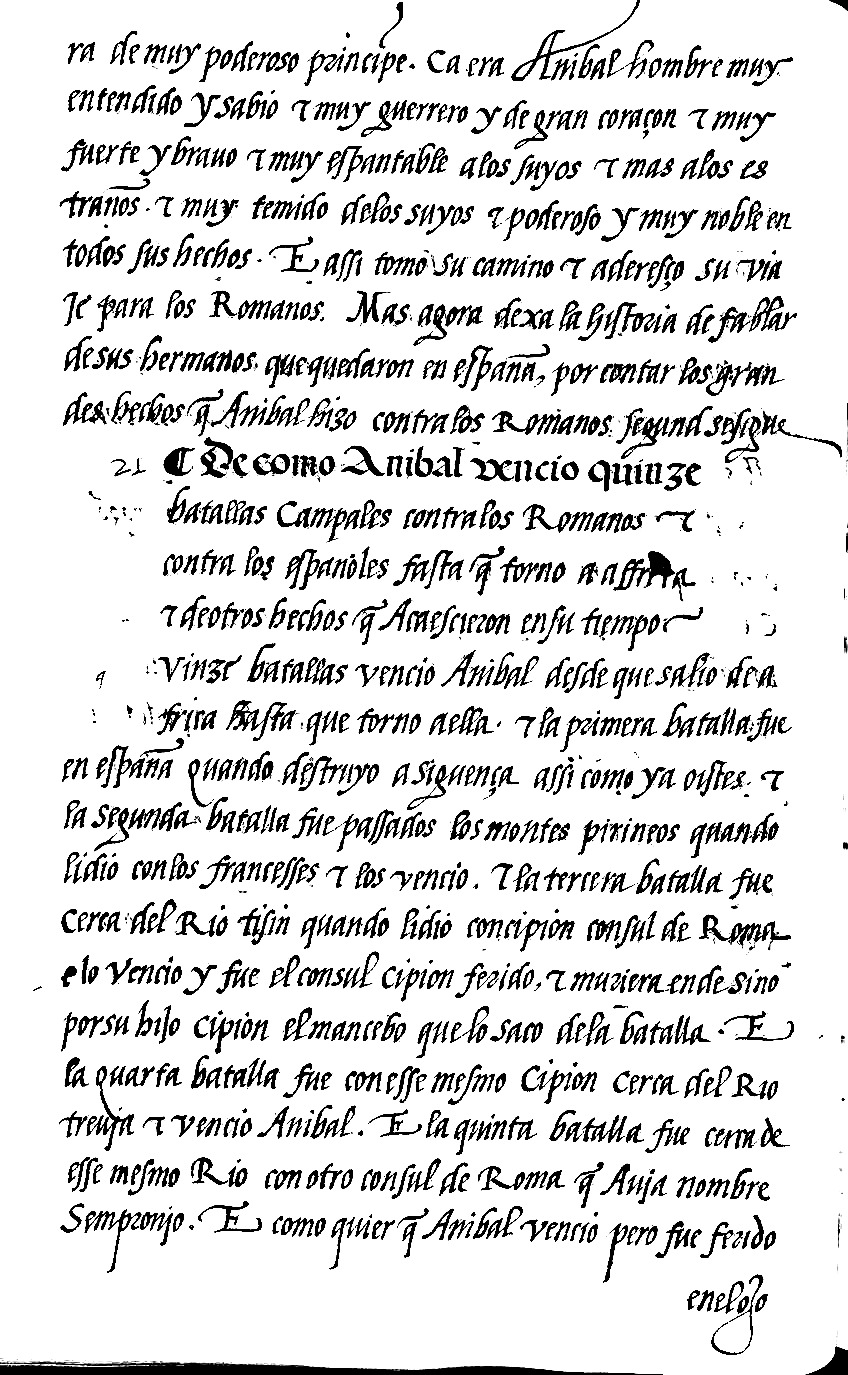 ra de muy poderoso principe. Ca era Anibal hombre muy
entendido y sabio τ muy guerrero y de gran coraçon τ muy
fuerte y brauo τ muy espantable alos suyos τ mas alos es
traños. τ muy temido delos suyos τ poderoso y muy noble en
todos sus hechos. E assi tomo su camino τ aderesço su via
Je para los Romanos. Mas agora dexa la historia de fablar
de sus hermanos, que quedaron en españa, por contar los gran
des hechos q̃ Anibal hizo contra los Romanos segund se sigue
21 ¶ De como Anibal vencio quinze
batallas Campales contra los Romanos τ
contra los españoles fasta q̃ torno a affrica
τ de otros hechos q̃ Acaescieron en su tiempo
vinze batallas vencio Anibal desde que salio de a
frica hasta que torno aella. τ la primera batalla fue
en españa quando destruyo a siguença assi como ya oistes. τ
la segunda batalla fue passados los montes pirineos quando
lidio con los francesses τ los vencio. τ la tercera batalla fue
cerca del Rio tisin quando lidio con cipion consul de Roma
e lo vencio y fue el consul cipion ferido, τ muriera ende sino
por su hijo cipion el mancebo que lo saco dela batalla. E
la quarta batalla fue con esse mesmo cipion cerca del Rio
treuja τ vencio Anibal. E la quinta batalla fue cerca de
esse mesmo Rio con otro consul de Roma q̃ Auja nombre
Sempronjo. E como quier q̃ Anibal vencio pero fue ferido
enel ojo